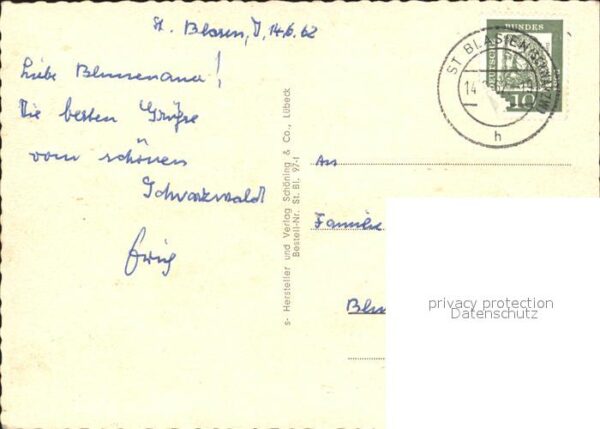 St. Blasien, d, 14.6.62
Liebe Blumenoma!
Die besten Grüße
vom schönen
Schwarzwald
s- Hersteller und Verlag Schöning & Co., Lübeck
Bestell-Nr. St. Bl. 97-1
BUNDES
ST BLASIEN
14
10
h
An
Familie
privacy protection
Datenschutz